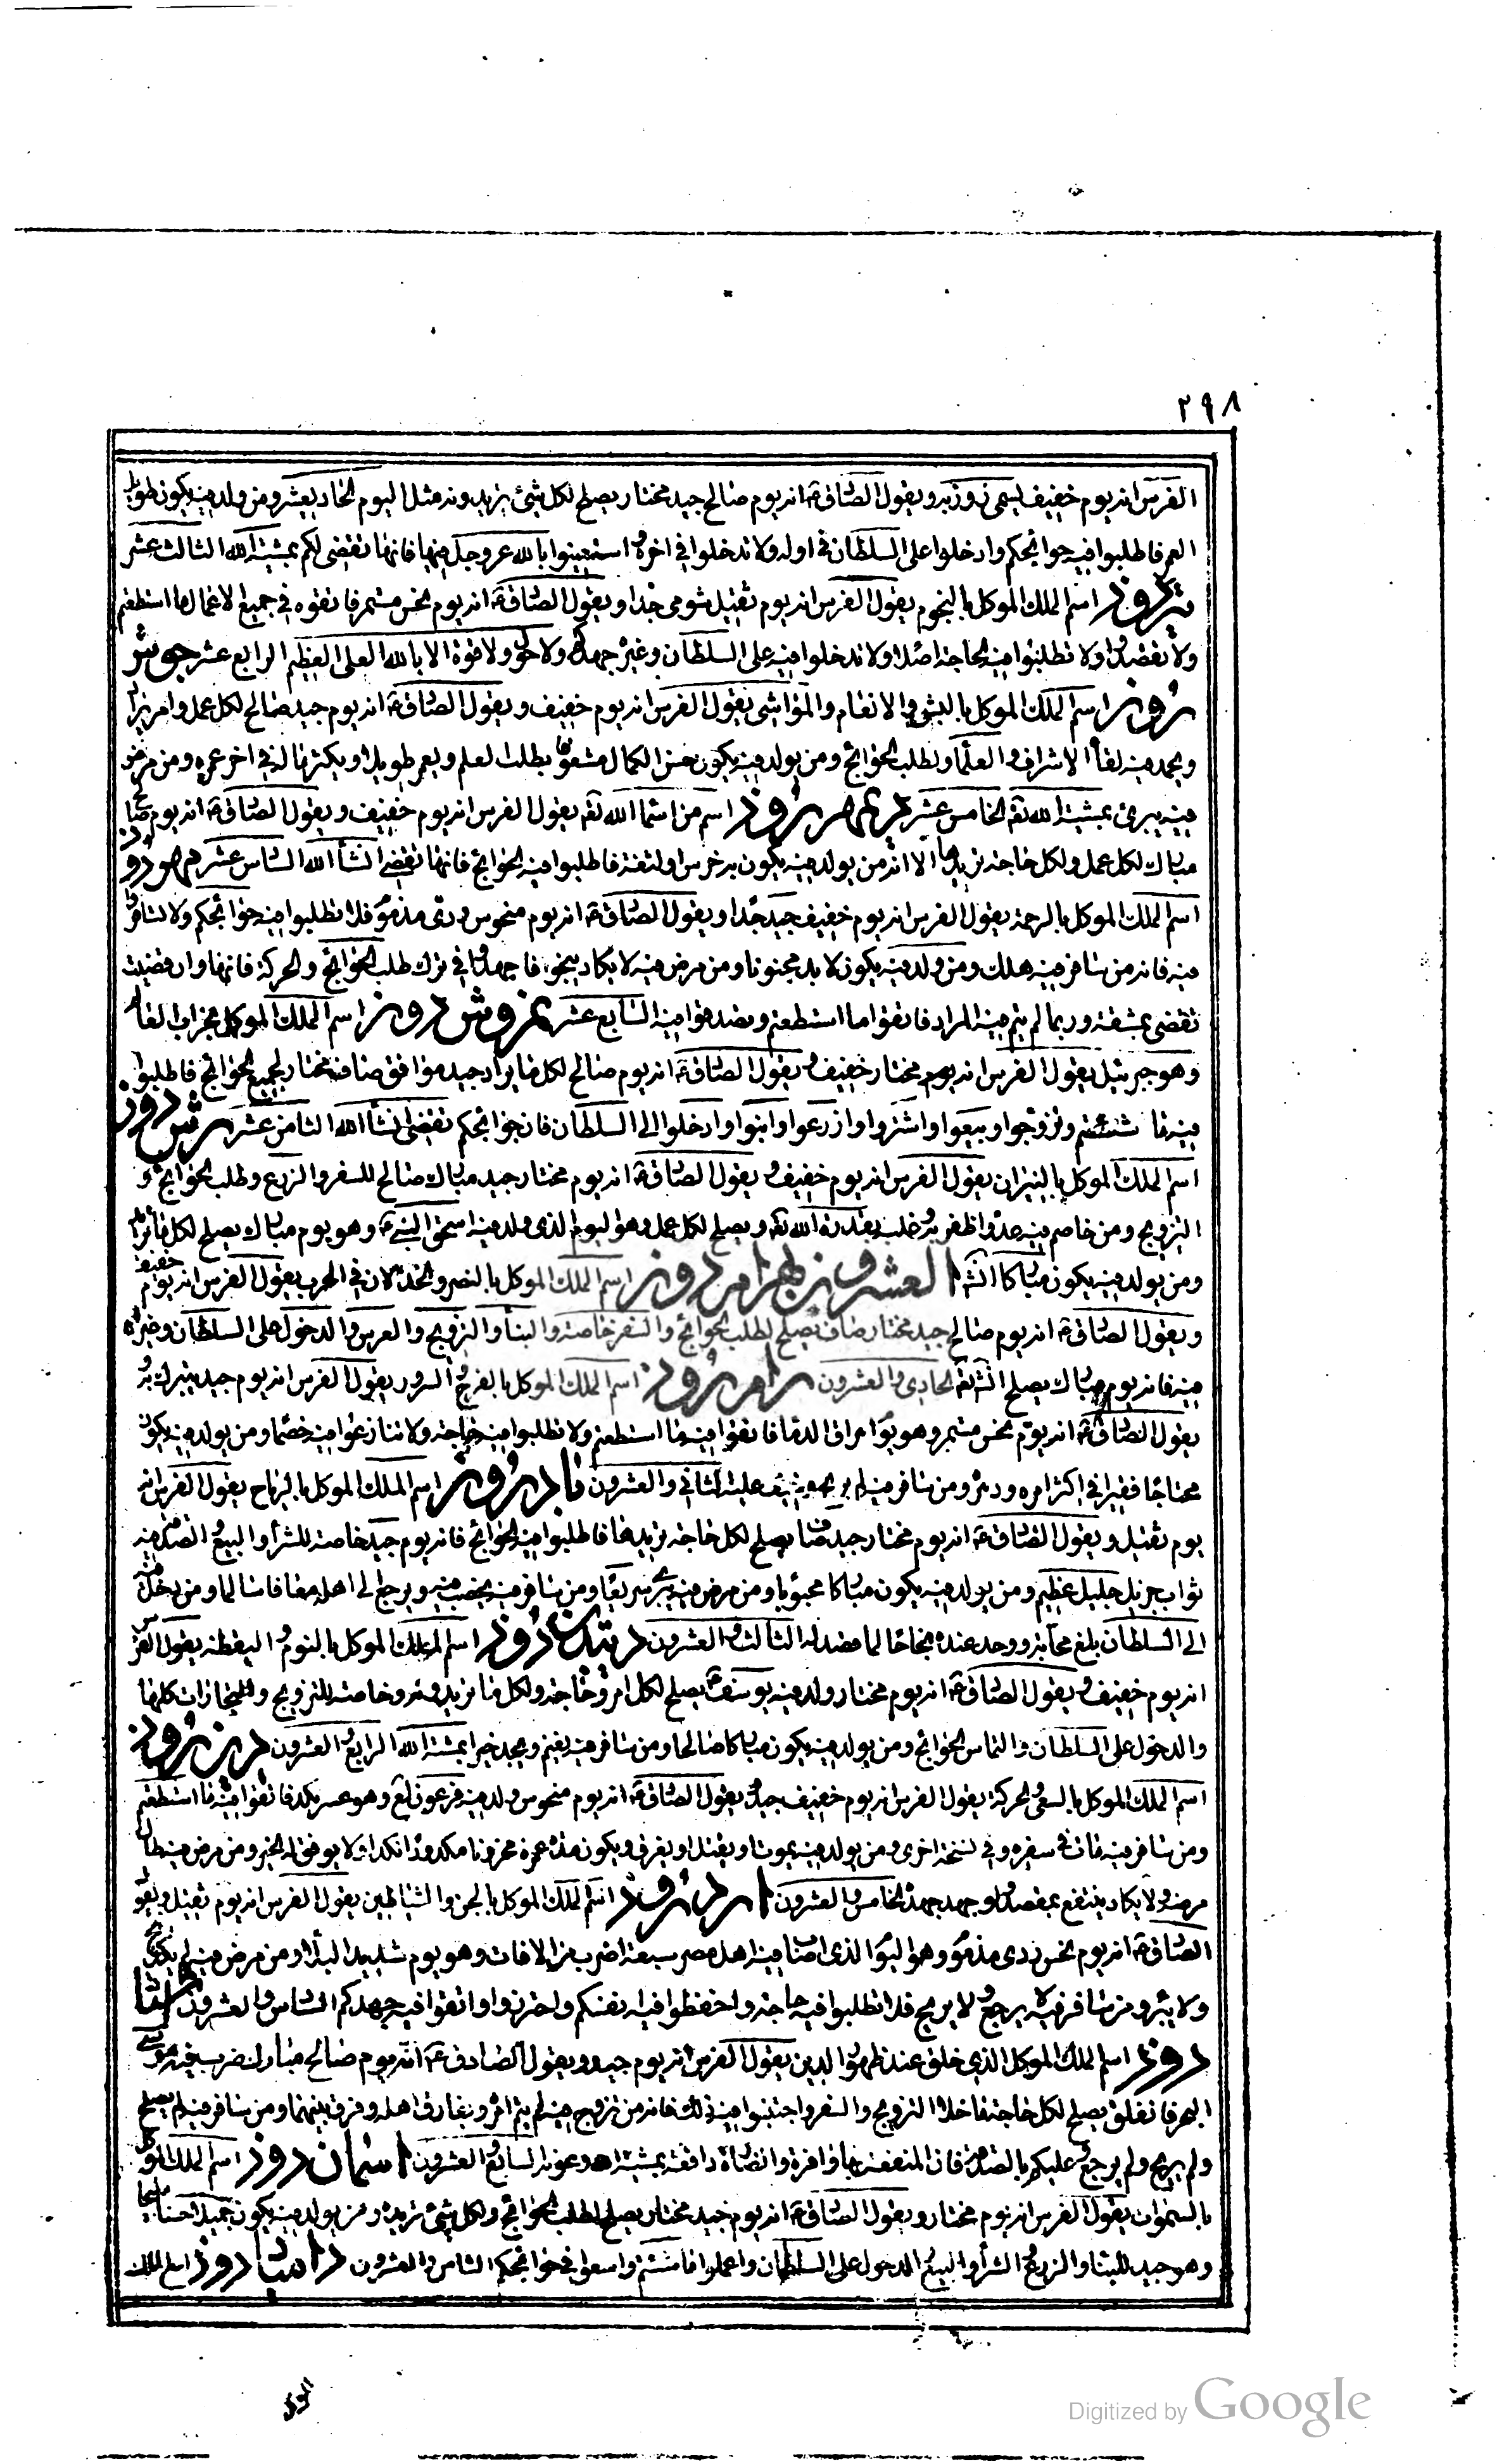 ٢٩٨
الفرس انه يوم خفيف يسمى روز به ويقول الصادق ع انه يوم صالح جيد مختار يصلح لكل شئ تريدونه مثل اليوم الحاديعشر ومن ولد فيه يكون طويل
العمر فاطلبوا فيه حوائجكم وادخلوا على السلطان في اوله ولا تدخلوا في اخره واستعينوا بالله عز وجل فيها فانها تقضى لكم بمشية الله الثالث عشر
تير روز اسم الملك الموكل بالنجوم يقول الفرس انه يوم ثقيل شومى جدا ويقول الصادق ع انه يوم نحس مستمر فاتقوه في جميع الاعمال ما استطعتم
ولا تقصدوا ولا تطلبوا فيه الحاجة اصلا ولا تدخلوا فيه على السلطان وغيره جهدكم ولا حول ولا قوة الا بالله العلى العظيم الرابع عشر جوش
روز اسم الملك الموكل بالبشر والانعام والمواشى يقول الفرس انه يوم خفيف ويقول الصادق ع انه يوم جيد صالح لكل عمل وامر يراد
ويحمد فيه لقاء الاشراف والعلماء وطلب الحوائج ومن يولد فيه يكون حسن الكمال مشعوفا بطلب العلم ويعمر طويلا ويكثر ماله في اخر عمره ومن مرض
فيه يبرئ بمشية الله تع الخامس عشر ديمهر روز اسم من اسماء الله تع يقول الفرس انه يوم خفيف ويقول الصادق ع انه يوم صالح
مبارك لكل عمل ولكل حاجة تريدها الا انه من يولد فيه يكون به خرس او لثغة فاطلبوا فيه الحوائج فانها تقضى انشاء الله السادس عشر مهر روز
اسم الملك الموكل بالرحمة يقول الفرس انه يوم خفيف جيد جدا ويقول الصادق ع انه يوم منحوس ردى مذموم فلا تطلبوا فيه حوائجكم ولا تسافروا
فيه فانه من سافر فيه هلك ومن ولد فيه يكون لا بد مجنونا ومن مرض فيه لا يكاد ينجو فاجهدوا في ترك طلب الحوائج والحركة فانها وان قضيت
تقضى بمشقة وربما لم يتم فيه المراد فاتقوا ما استطعتم وتصدقوا فيه السابع عشر سروش روز اسم الملك الموكل بخراب العالم
وهو جبرئيل يقول الفرس انه يوم مختار خفيف ويقول الصادق ع انه يوم صالح لكل ما يراد جيد موافق صاف مختار لجميع الحوائج فاطلبوا
فيه ما شئتم وتزوجوا وبيعوا واشتروا وازرعوا وابنوا وادخلوا الى السلطان فان حوائجكم تقضى انشاء الله الثامن عشر رش روز
اسم الملك الموكل بالنيران يقول الفرس انه يوم خفيف ويقول الصادق ع انه يوم مختار جيد مبارك صالح للسفر والزرع وطلب الحوائج و
التزويج ومن خاصم فيه عدوا ظفر به وغلبه بقدرة الله تع ويصلح لكل عمل وهو اليوم الذى ولد فيه اسحق النبى ع وهو يوم مبارك يصلح لكل ما تريد
ومن يولد فيه يكون مباركا انش العشرون بهرام روز اسم الملك الموكل بالنصر والخذلان في الحرب يقول الفرس انه يوم خفيف
ويقول الصادق ع انه يوم صالح جيد مختار صاف يصلح لطلب الحوائج والسفر خاصة والبناء والتزويج والعرس والدخول على السلطان وغيره
فيه فانه يوم مبارك يصلح انش تع الحادى والعشرون رام روز اسم الملك الموكل بالفرح والسرور يقول الفرس انه يوم جيد يتبرك به
يقول الصادق ع انه يوم نحس مستمر وهو يوم اهراق الدماء فاتقوا فيه ما استطعتم ولا تطلبوا فيه حاجة ولا تنازعوا فيه خصما ومن يولد فيه يكون
محتاجا فقيرا في اكثر امره ودهره ومن سافر فيه لم يربح وخيف عليه الثاني والعشرون باد روز اسم الملك الموكل بالرياح يقول الفرس انه
يوم ثقيل ويقول الصادق ع انه يوم مختار جيد صاف يصلح لكل حاجة تريدها فاطلبوا فيه الحوائج فانه يوم جيد خاصة للشراء والبيع والصدقة فيه
ثواب جزيل جليل عظيم ومن يولد فيه يكون مباركا محبوبا ومن مرض فيه يبرئ سريعا ومن سافر فيه يخصب ويرجع الى اهله معافا سالما ومن دخل فيه
الى السلطان بلغ محابه ووجد عنده نجاحا لما قصد له الثالث والعشرون ديبدين روز اسم الملك الموكل بالنوم واليقظة يقول الفرس
انه يوم خفيف ويقول الصادق ع انه يوم مختار ولد فيه يوسف ع يصلح لكل امر وحاجة ولكل ما تريدونه وخاصة للتزويج والتجارات كلها
والدخول على السلطان والتماس الحوائج ومن يولد فيه يكون مباركا صالحا ومن سافر فيه يغنم ويجد خيرا بمشية الله الرابع والعشرون دين روز
اسم الملك الموكل بالسعى والحركة يقول الفرس انه يوم خفيف جيد ويقول الصادق ع انه يوم منحوس ولد فيه فرعون لع وهو عسر نكد فاتقوا فيه ما استطعتم
ومن سافر فيه مات في سفره وفي نسخة اخرى ومن يولد فيه يموت او يقتل او يغرق ويكون مدة عمره محزونا مكدودا نكدا ولا يوفق لخير ومن مرض فيه طال
مرضه ولا يكاد ينتفع بمقصد ولو جهد جهده الخامس والعشرون ارد روز اسم الملك الموكل بالجن والشياطين يقول الفرس انه يوم ثقيل ويقول
الصادق ع انه يوم نحس ردى مذموم وهو اليوم الذى اصاب فيه اهل مصر سبعة اضرب من الافات وهو يوم شديد البلاء ومن مرض فيه لم يكد ينجو
ولا يبرؤ ومن سافر فيه لا يرجع ولا يربح فلا تطلبوا فيه حاجة واحفظوا فيه انفسكم واحترزوا واتقوا فيه جهدكم السادس والعشرون اشتاد
روز اسم الملك الموكل الذي خلق عند ظهور الدين يقول الفرس انه يوم جيد ويقول الصادق ع انه يوم صالح مبارك ضرب فيه موسى
البحر فانفلق يصلح لكل حاجة ما خلا التزويج والسفر واجتنبوا فيه ذلك فانه من تزوج فيه لم يتم امره ويفارق اهله وفرق بينهما ومن سافر فيه لم يصلح
ولم يربح ولم يرجع وعليكم بالصدقة فان المنفعة بها وافرة والمضاة دافعة بمشية الله وعونه السابع والعشرون اسمان روز اسم الملك الموكل
بالسموات يقول الفرس انه يوم مختار ويقول الصادق ع انه يوم جيد مختار يصلح لطلب الحوائج ولكل شئ تريده ومن يولد فيه يكون جميلا حسنا مليحا
وهو جيد للبناء والزرع والشراء والبيع والدخول على السلطان واعملوا ما شئتم واسعوا في حوائجكم الثامن والعشرون رامياد روز اسم الملك
الموكل
Digitized by Google